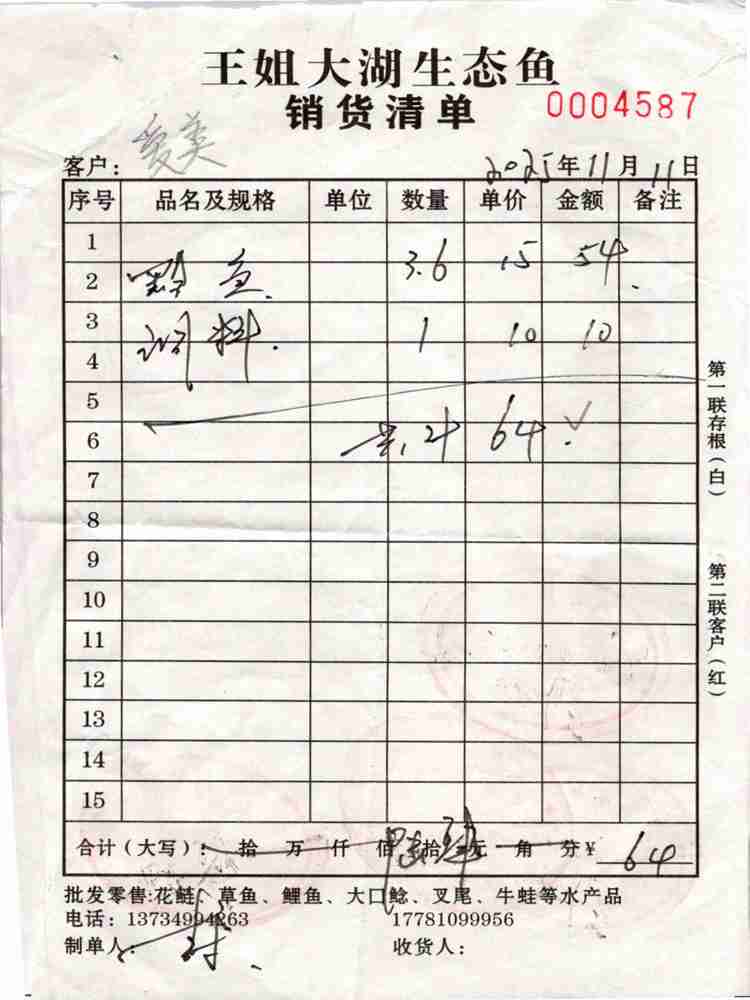 王姐大湖生态鱼
销货清单 0004587
客户：爱美 2025年11月11日
序号 品名及规格 单位 数量 单价 金额 备注
1
2 鱼 3.6 15 54
3
4 调料 1 10 10
5
6 共计 64
7
8
9
10
11
12
13
14
15
合计（大写）： 拾 万 仟 佰 陆拾肆元 角 分￥ 64
批发零售:花鲢、草鱼、鲤鱼、大口鲶、叉尾、牛蛙等水产品
电话：13734994263 17781099956
制单人： 收货人：
第一联存根（白）
第二联客户（红）